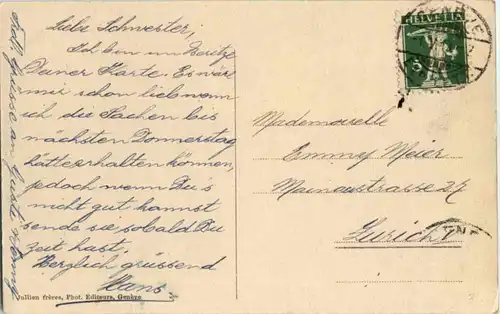 Liebe Schwester,
Ich bin im Besitze
Deiner Karte. Es wär
mir schon lieb wenn
ich die Sachen bis
nächsten Donnerstag
hätte erhalten können,
jedoch wenn Du s
nicht gut kannst
sende sie, sobald Du
Zeit hast.
Herzlich grüssend
Hans.
Jullien frères, Phot. Editeurs, Genève
Grüsse an
HELVETIA
5
Mademoiselle
Emmy Meier
Mainaustrasse 27
Zurich